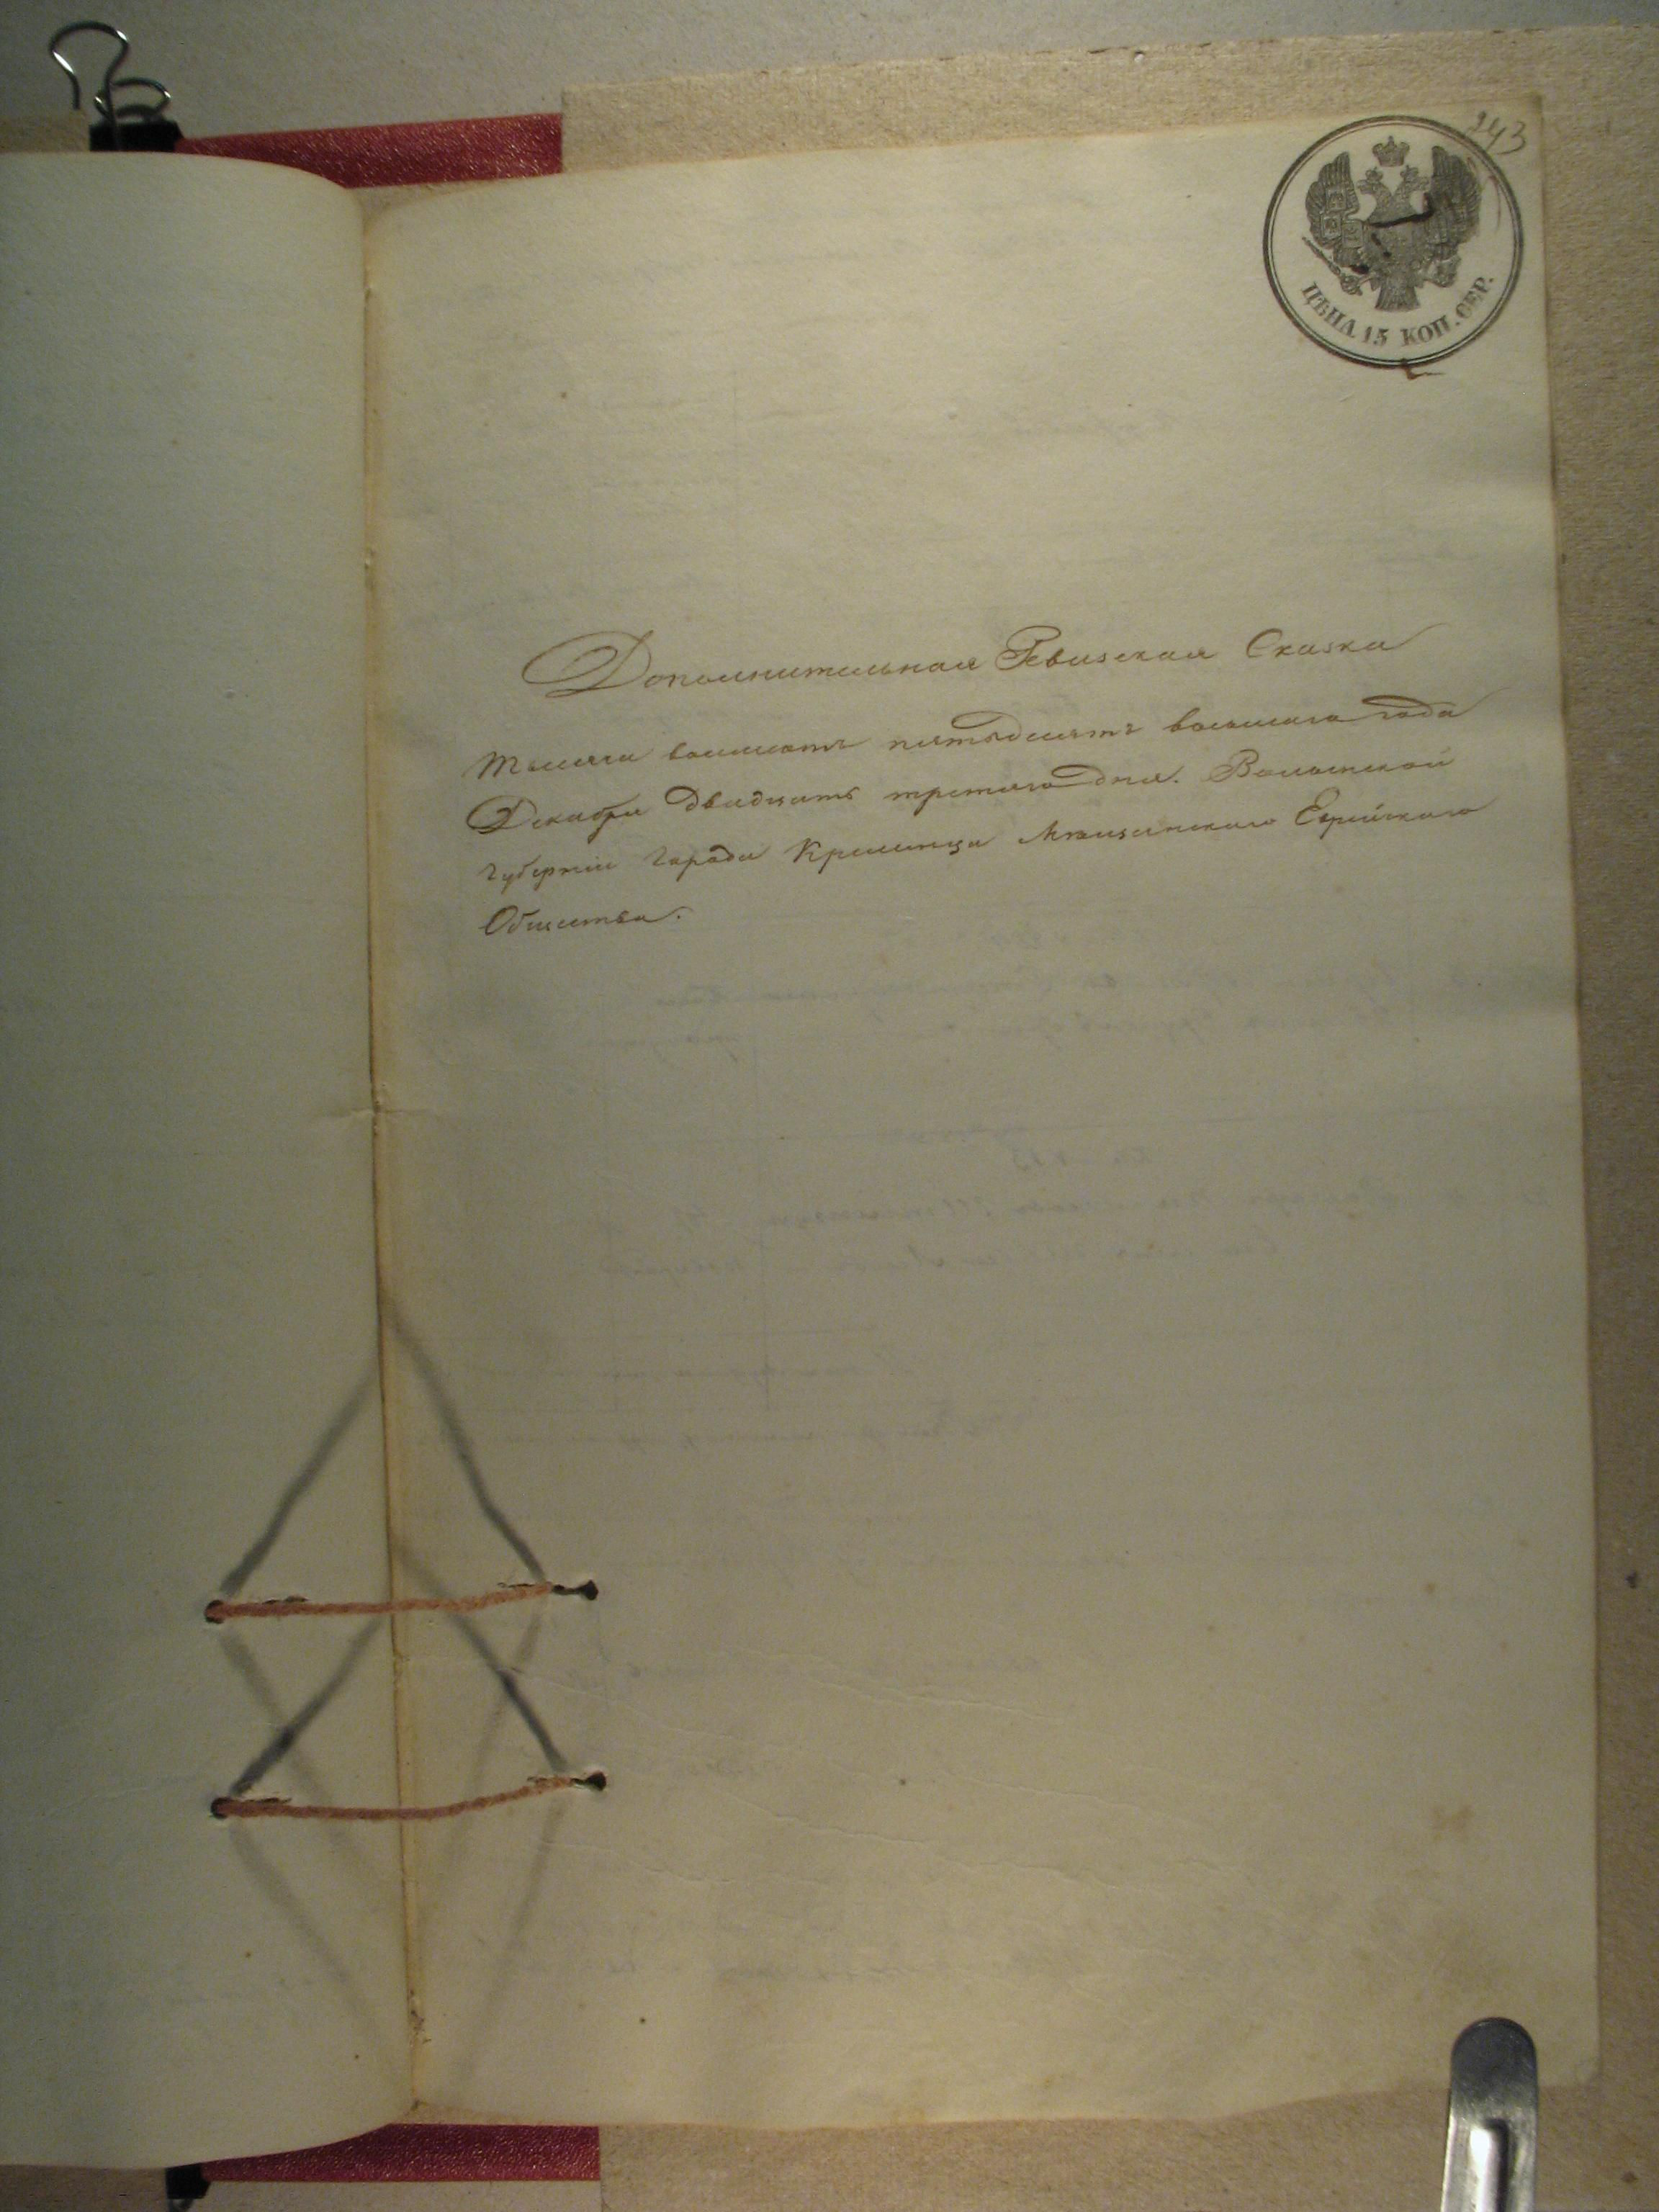 243
ЦѢНА 15 КОП. СЕР.
Дополнительная Ревизская Сказка
тысяча восемсотъ пятьдесятъ восьмаго года
Декабря двадцать третьяго дня. Волынской
губерніи города Кременца Мѣщанскаго Еврейскаго
Общества.